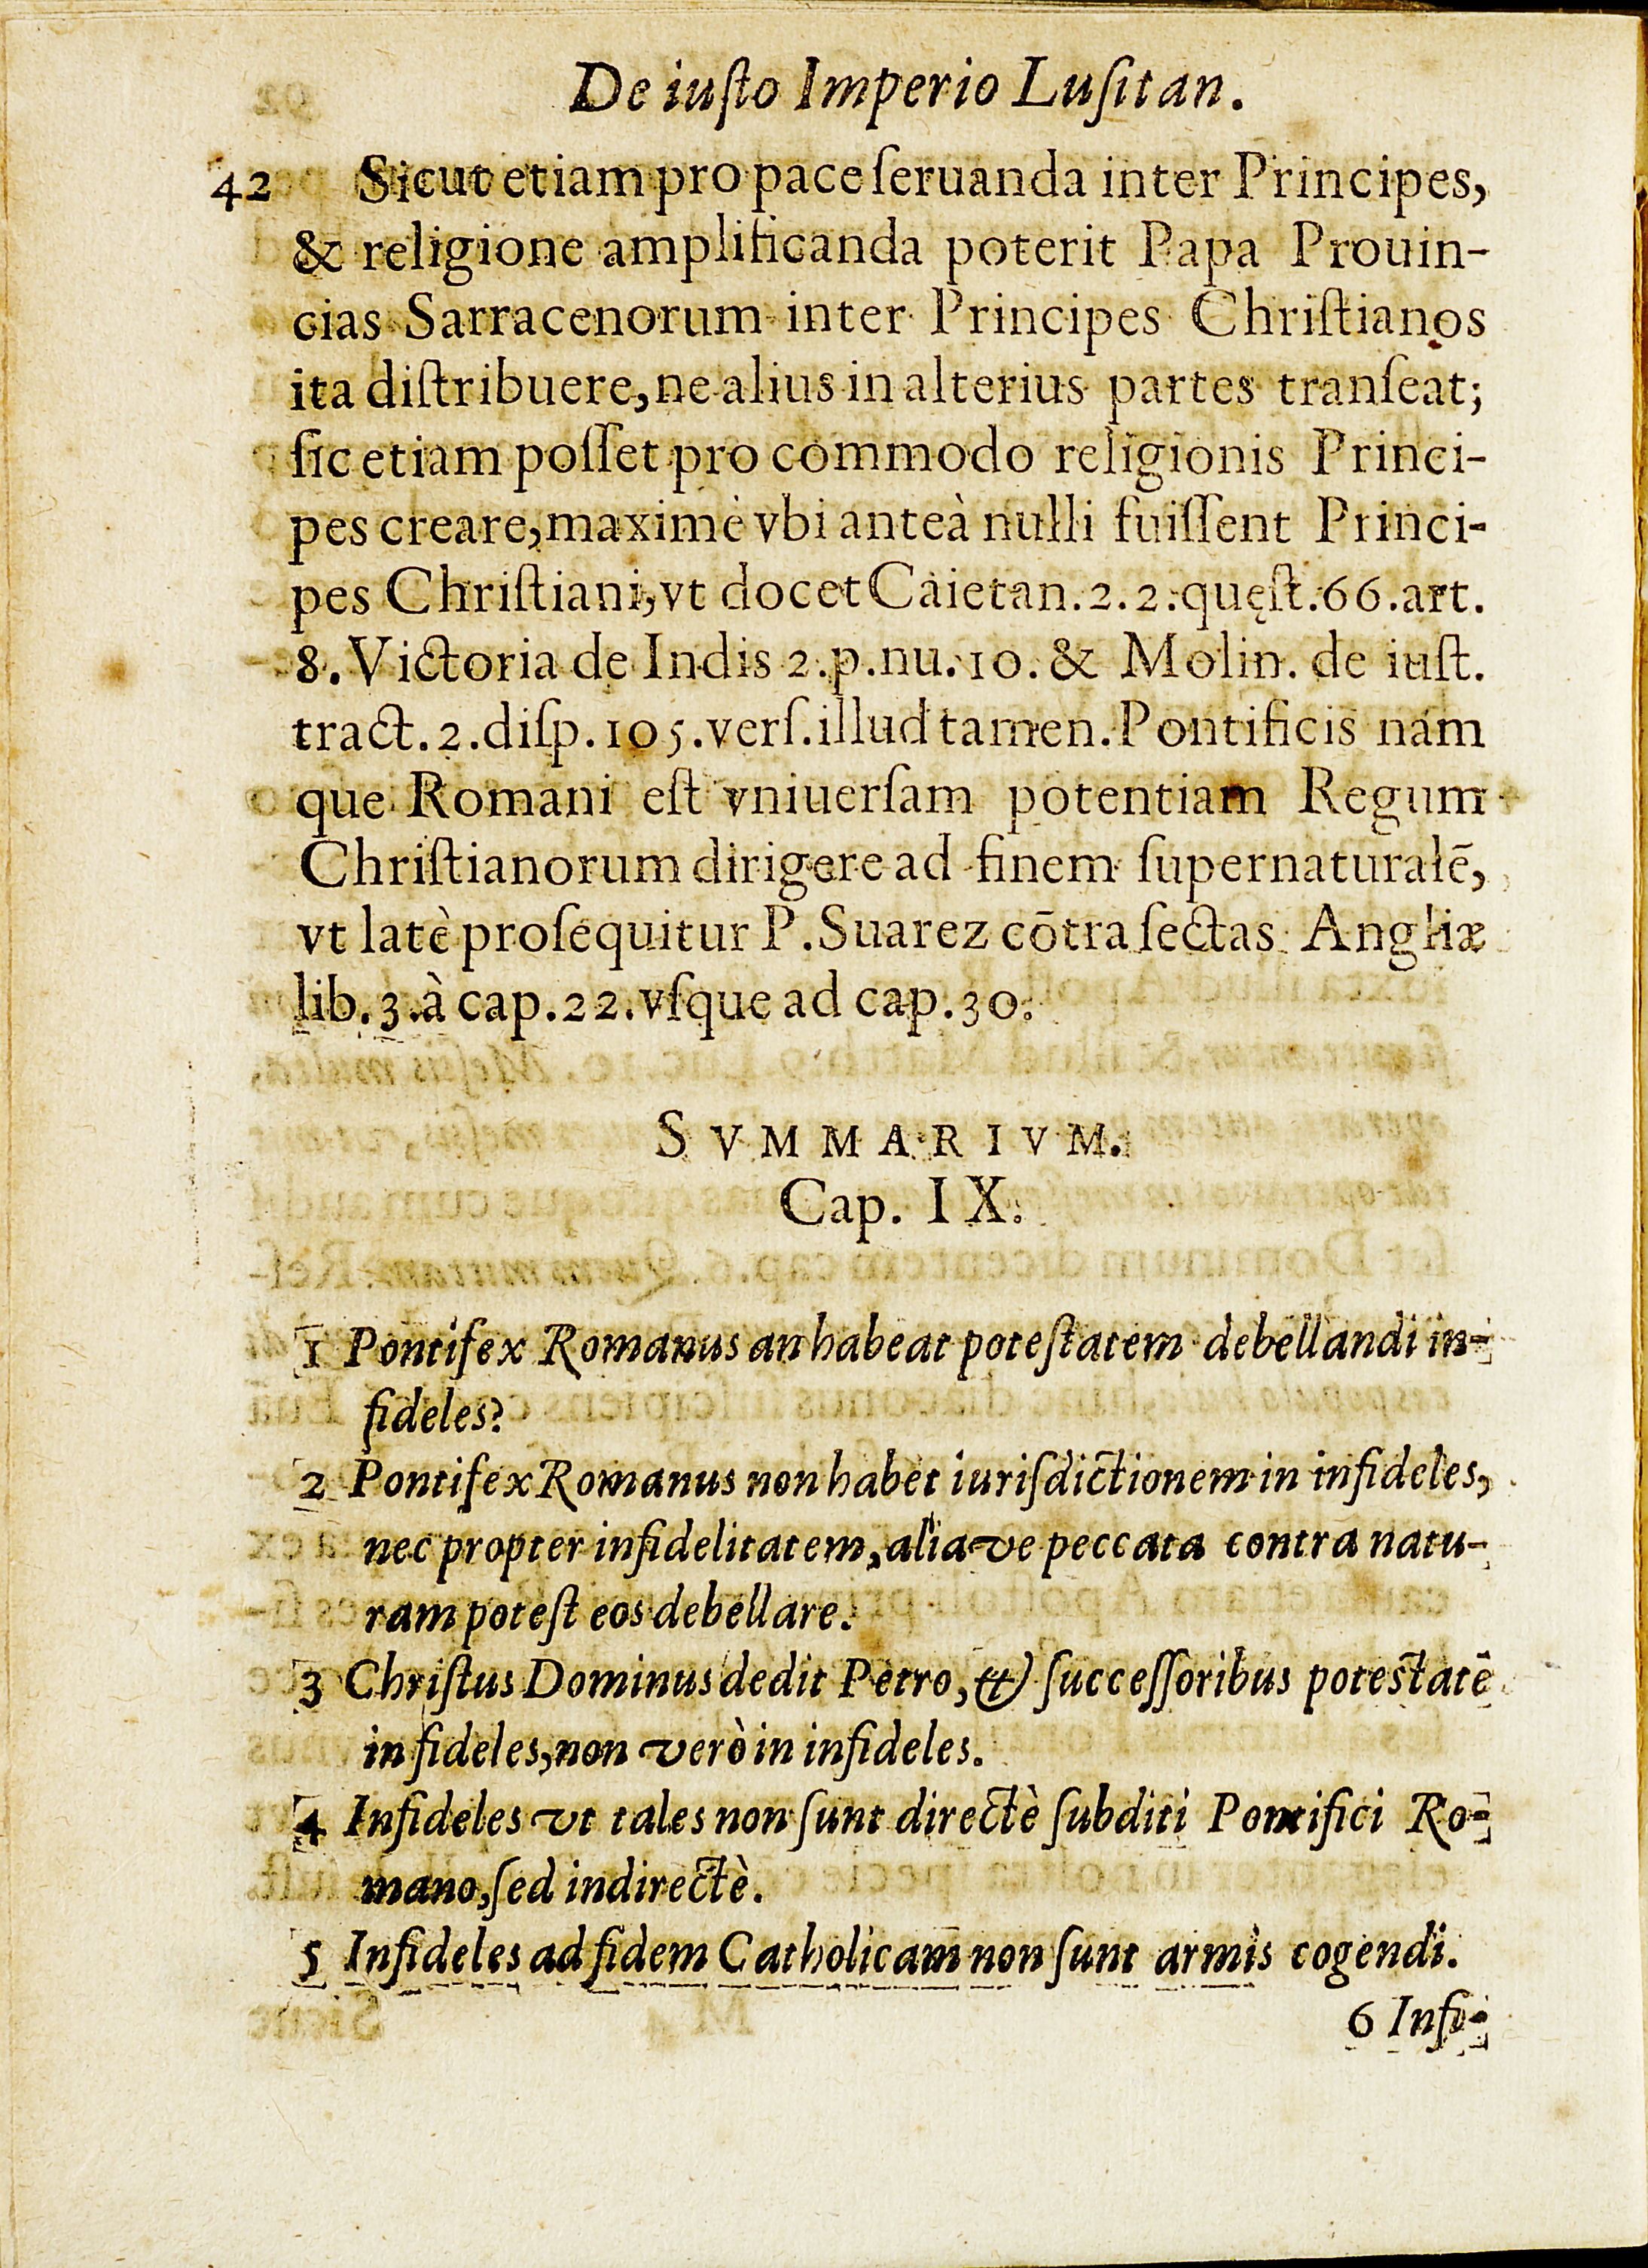 De iuſto Imperio Luſitan.
42 Sicut etiam pro pace ſeruanda inter Principes,
& religione amplificanda poterit Papa Prouin-
cias Sarracenorum inter Principes Chriſtianos
ita diſtribuere, ne alius in alterius partes tranſeat;
ſic etiam poſſet pro commodo religionis Princi-
pes creare, maximè vbi anteà nulli fuiſſent Princi-
pes Chriſtiani, vt docet Caietan. 2. 2. quęſt. 66. art.
8. Victoria de Indis 2. p. nu. 10. & Molin. de iuſt.
tract. 2. diſp. 105. verſ. illud tamen. Pontificis nam
que Romani eſt vniuerſam potentiam Regum
Chriſtianorum dirigere ad finem ſupernaturalē,
vt latè proſequitur P. Suarez cōtra ſectas Angliæ
lib. 3. à cap. 22. vſque ad cap. 30.
SVMMARIVM.
Cap. IX.
1 Pontifex Romanus an habeat poteſtatem debellandi in-
fideles?
2 Pontifex Romanus non habet iuriſdictionem in infideles,
nec propter infidelitatem, aliave peccata contra natu-
ram poteſt eos debellare.
3 Chriſtus Dominus dedit Petro, & ſucceſſoribus poteſtatē
in fideles, non verò in infideles.
4 Infideles vt tales non ſunt directè ſubditi Pontifici Ro-
mano, ſed indirectè.
5 Infideles ad fidem Catholicam non ſunt armis cogendi.
6 Infi-